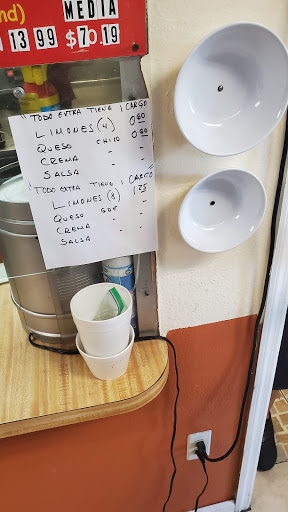 nd) MEDIA
13 99 $70.19
"TODO EXTRA TIENE 1 CARGO
LIMONES (4) 0 80
QUESO CHICO 0 80
CREMA - -
SALSA - -
"TODO EXTRA TIENE 1 CARGO
LIMONES (8) 1 25
QUESO GDE -
CREMA - -
SALSA - -